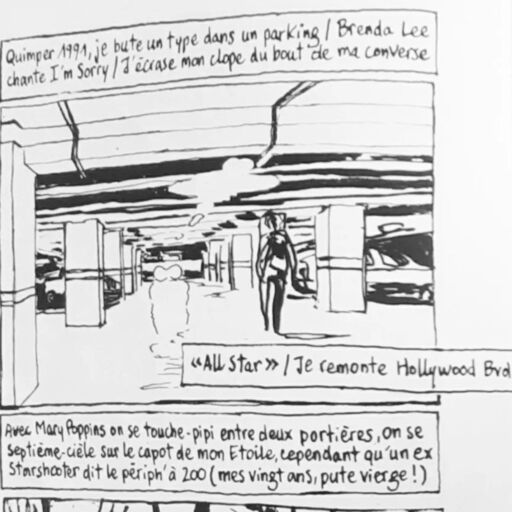 Quimper 1991, je bute un type dans un parking / Brenda Lee
chante I'm Sorry / J'écrase mon clope du bout de ma converse
«All Star» / Je remonte Hollywood Bvd
Avec Mary Poppins on se touche-pipi entre deux portières, on se
septième-cièle sur le capot de mon Etoile, cependant qu'un ex
Starshooter dit le périph' à 200 (mes vingt ans, pute vierge !)